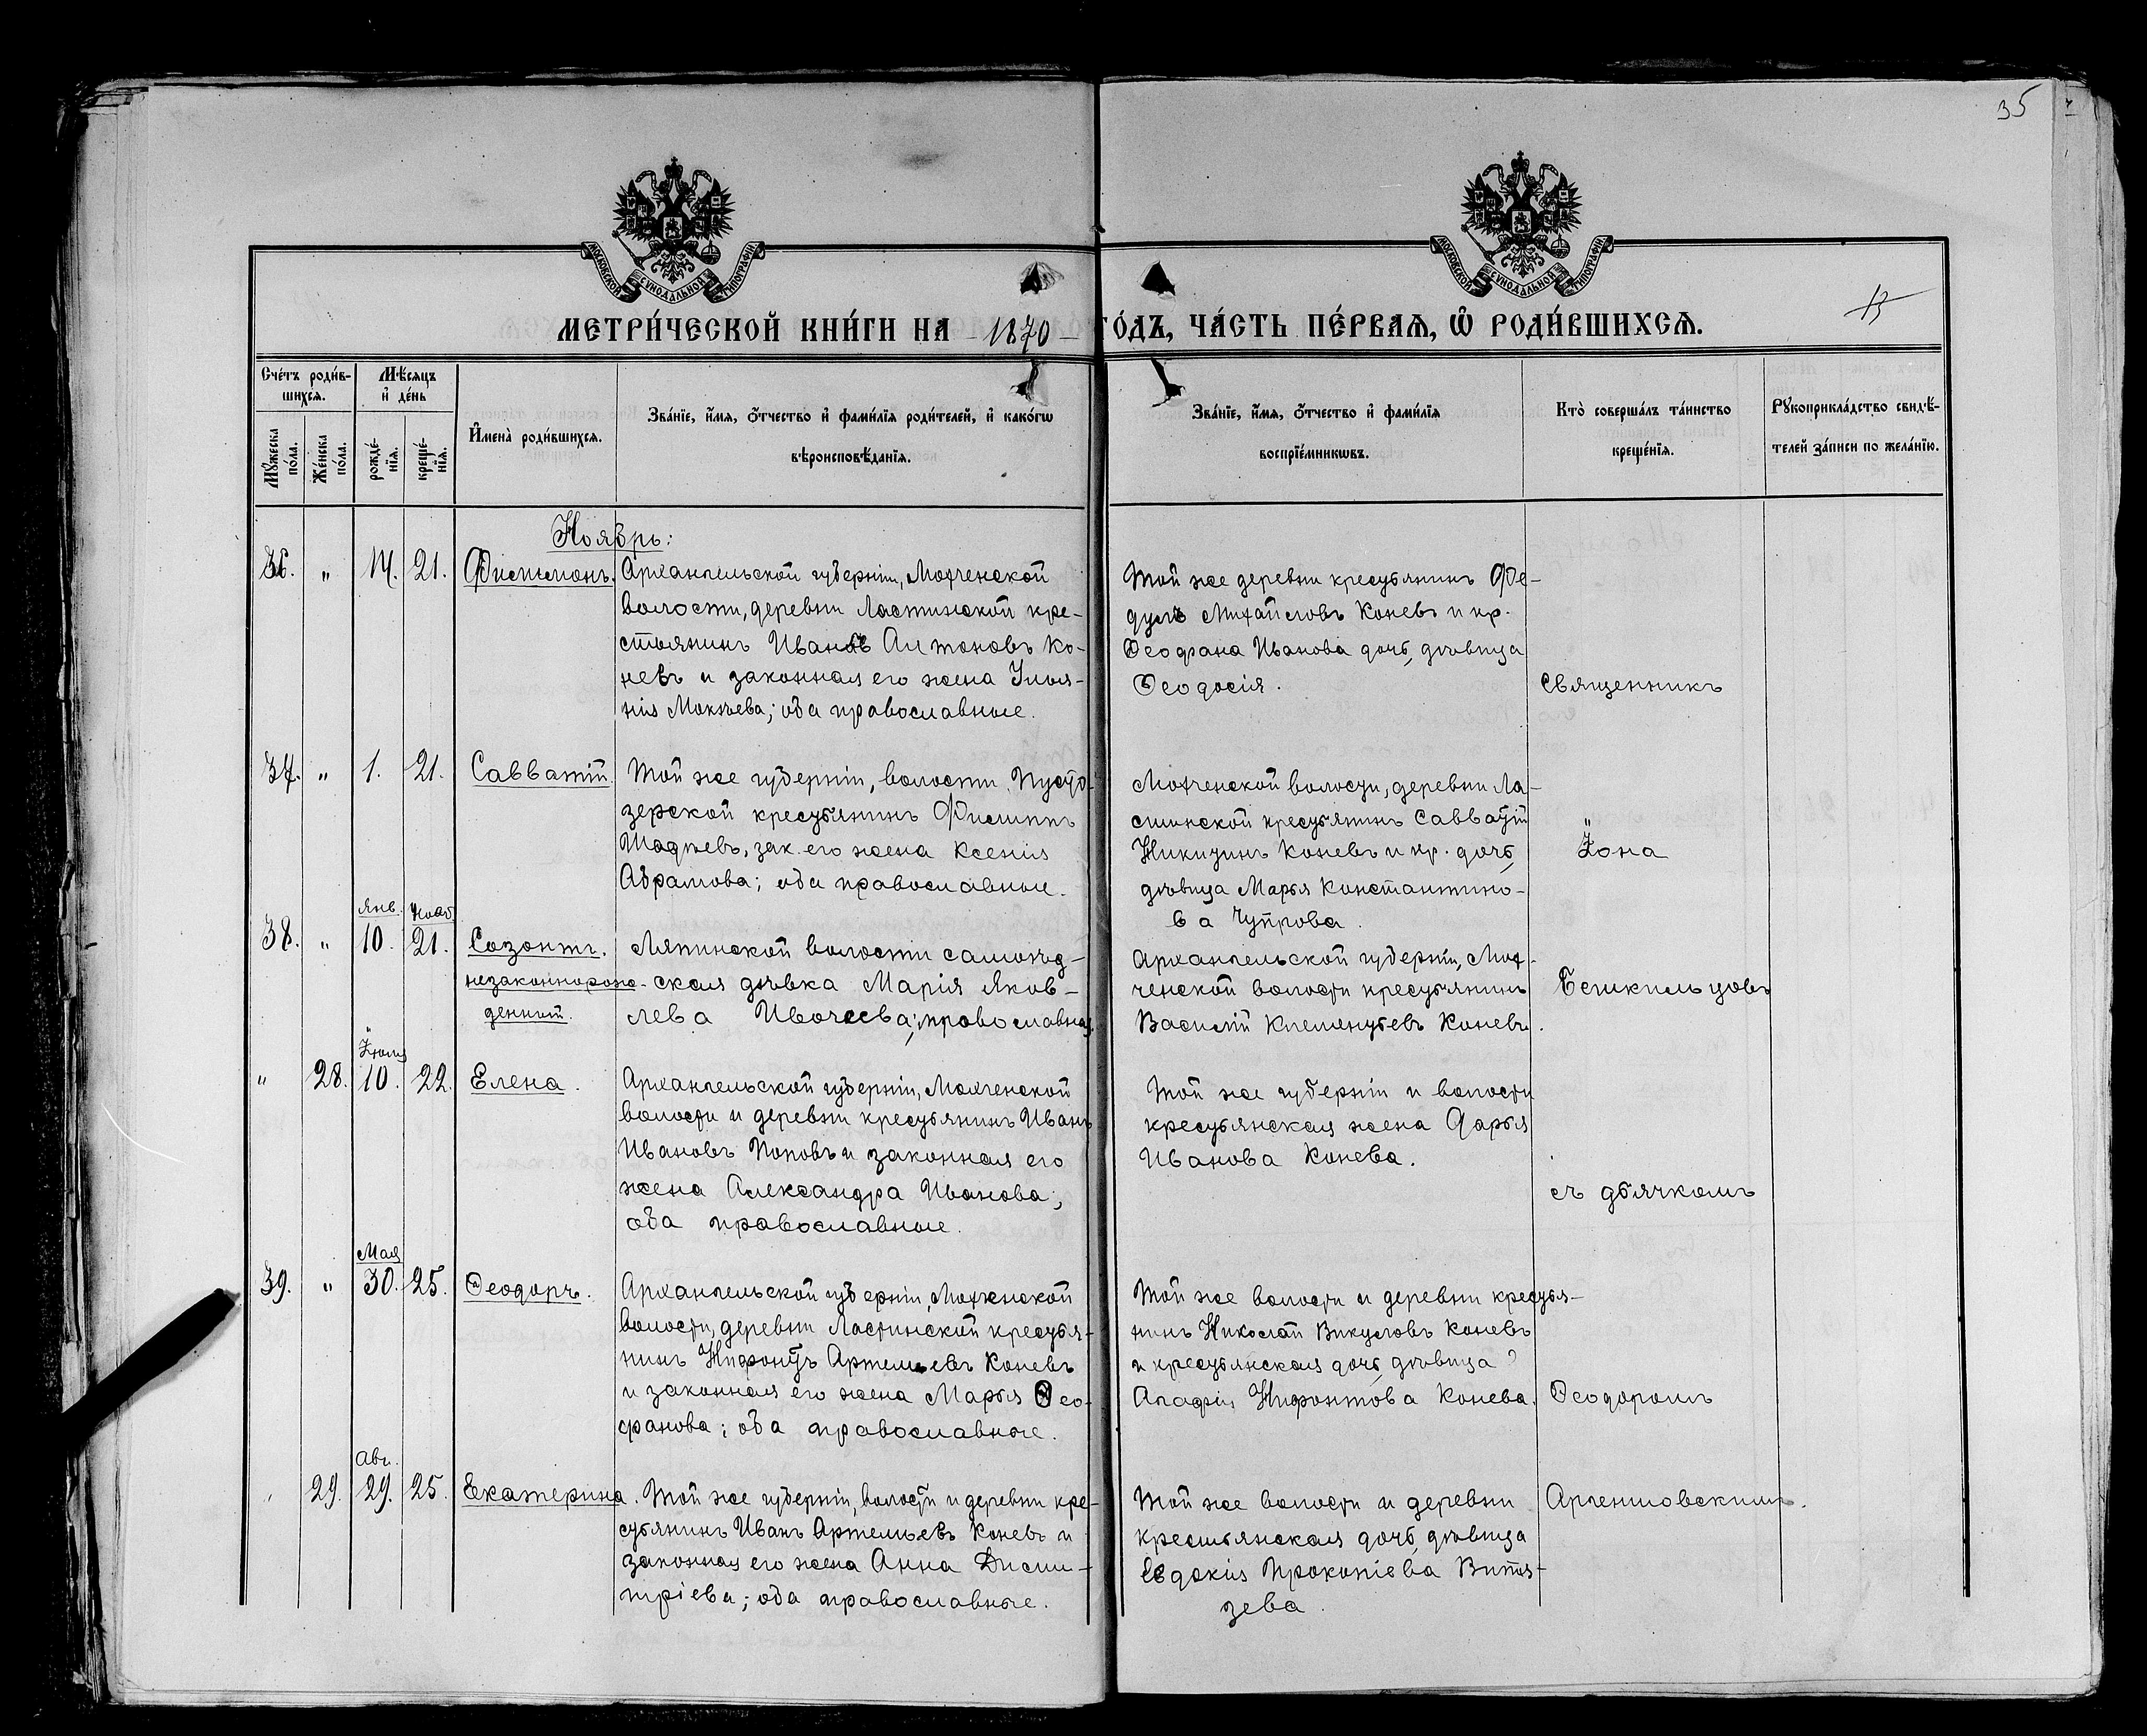 35
МОСКОВСКОЙ СѴНОДАЛЬНОЙ ТИПОГРАФІИ
МОСКОВСКОЙ СѴНОДАЛЬНОЙ ТИПОГРАФІИ
МЕТРИ́ЧЕСКОЙ КНИ́ГИ НА 1870 ГО́ДЪ, ЧА́СТЬ ПЕ́РВАѦ, Ѡ҆ РОДИ́ВШИХСѦ.
13
Сче́тъ роди́в-
шихсѧ.
Мѣ́сѧцъ
и҆ де́нь
Мꙋ́жеска
по́ла.
Же́нска
по́ла.
рожде́-
нїѧ.
креще́-
нїѧ.
И҆мена̀ роди́вшихсѧ.
Зва́нїе, и҆́мѧ, ѻ҆́тчество и҆ фами́лїѧ роди́телей, и҆ како́гѡ
вѣроисповѣ́данїѧ.
Зва́нїе, и҆́мѧ, ѻ҆́тчество и҆ фами́лїѧ
воспрїе́мникѡвъ.
Кто̀ соверша́лъ та́инство
креще́нїѧ.
Рꙋкоприкла́дство свидѣ́-
телей за́писи по жела́нїю.
Ноябрь:
36. " 14. 21. Филимонъ.
Архангельской губерніи, Мохченской
волости, деревни Ластинской кре-
стьянинъ Иванъ Антоновъ Ко-
невъ и законная его жена Ульян-
нія Мокіева; оба православные.
Той же деревни крестьянинъ Фе-
дулъ Михайловъ Коневъ и кр.
Ѳеофана Иванова дочь, дѣвица
Ѳеодосія.
Священникъ
37. " 1. 21. Савватій.
Той же губерніи, волости Пусто-
зерской крестьянинъ Филиппъ
зак. его жена Ксенія
Абрамова; оба православные.
Мохченской волости, деревни Ла-
стинской крестьянинъ Савватій
Никитинъ Коневъ и кр. дочь,
дѣвица Марья Константино-
ва Чупрова.
Іона
38. " Янв. 10. Нояб. 21. Созонтъ.
незаконнорож-
денный.
Ляпинской волости самоѣд-
ская дѣвка Марія Яков-
лева православная.
Архангельской губерніи, Мох-
ченской волости крестьянинъ
Василій Клементьевъ Коневъ.
" 28. Іюля 10. 22. Елена.
Архангельской губерніи, Мохченской
волости и деревни крестьянинъ Иванъ
Ивановъ Поповъ и законная его
жена Александра Иванова;
оба православные.
Той же губерніи и волости
крестьянская жена Дарья
Иванова Конева.
съ дьячкомъ
39. " Мая 30. 25. Ѳеодоръ.
Архангельской губерніи, Мохченской
волости, деревни Ластинской крестья-
нинъ Нифонтъ Артемьевъ Коневъ
и законная его жена Марья Ѳео-
фанова; оба православные.
Той же волости и деревни крестья-
нинъ Николай Викуловъ Коневъ
и крестьянская дочь, дѣвица
Агафія Нифонтова Конева.
Ѳеодоромъ
" 29. Авг. 29. 25. Екатерина.
Той же губерніи, волости и деревни кре-
стьянинъ Иванъ Артемьевъ Коневъ и
законная его жена Анна Дими-
тріева; оба православные.
Той же волости и деревни
крестьянская дочь, дѣвица
Евдокія Прокопіева Витя-
зева.